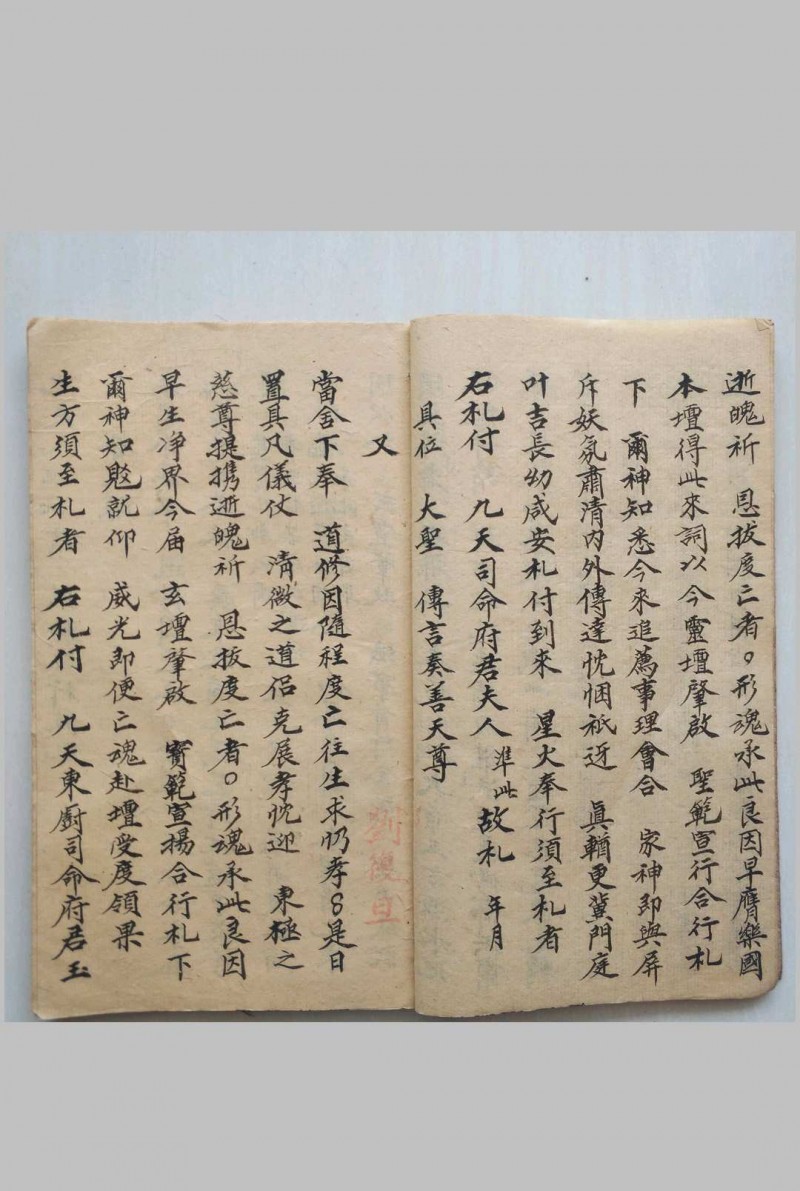 逝魄祈　恩拔度亡者○形魂承此良因早膺樂國
本壇得此來詞以今靈壇肇啟　聖範宣行合行札
下　爾神知悉今來追薦事理會合　家神即與屏
斥妖氛肅清内外傳達忱悃祗迓　眞輶更冀門庭
叶吉長幼咸安札付到來　星火奉行須至札者
右札付　九天司命府君夫人　準此　故札　年月
具位　大聖　傳言奏善天尊
又
劉復旦
當舍下奉　道修因隨程度亡往生求忉孝8是日
置具凡儀仗　清微之道侣克展孝忱迎　東極之
慈尊提携逝魄祈　恩拔度亡者○形魂承此良因
早生净界今届　玄壇肇啟　寳範宣揚合行札下
爾神知愍就仰　威光即便亡魂赴壇受度領果
生方須至札者　右札付　九天東廚司命府君玉